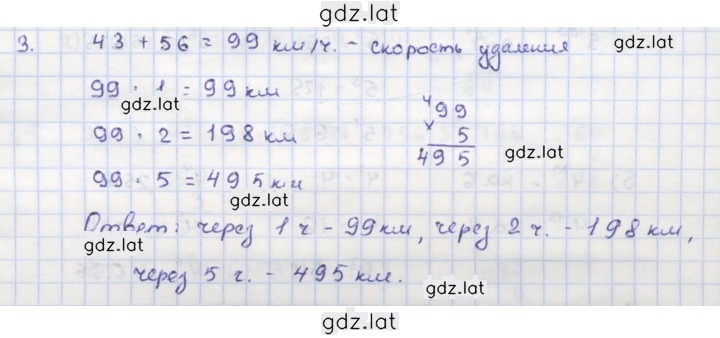 gdz.lat
3. 43 + 56 = 99 км/ч. - скорость удаления
gdz.lat
99 · 1 = 99 км
gdz.lat
99 · 2 = 198 км
99 · 5 = 495 км
4 99
× 5
495
gdz.lat
gdz.lat
Ответ: через 1 ч - 99 км, через 2 ч. - 198 км,
gdz.lat
через 5 ч. - 495 км.
gdz.lat
gdz.lat